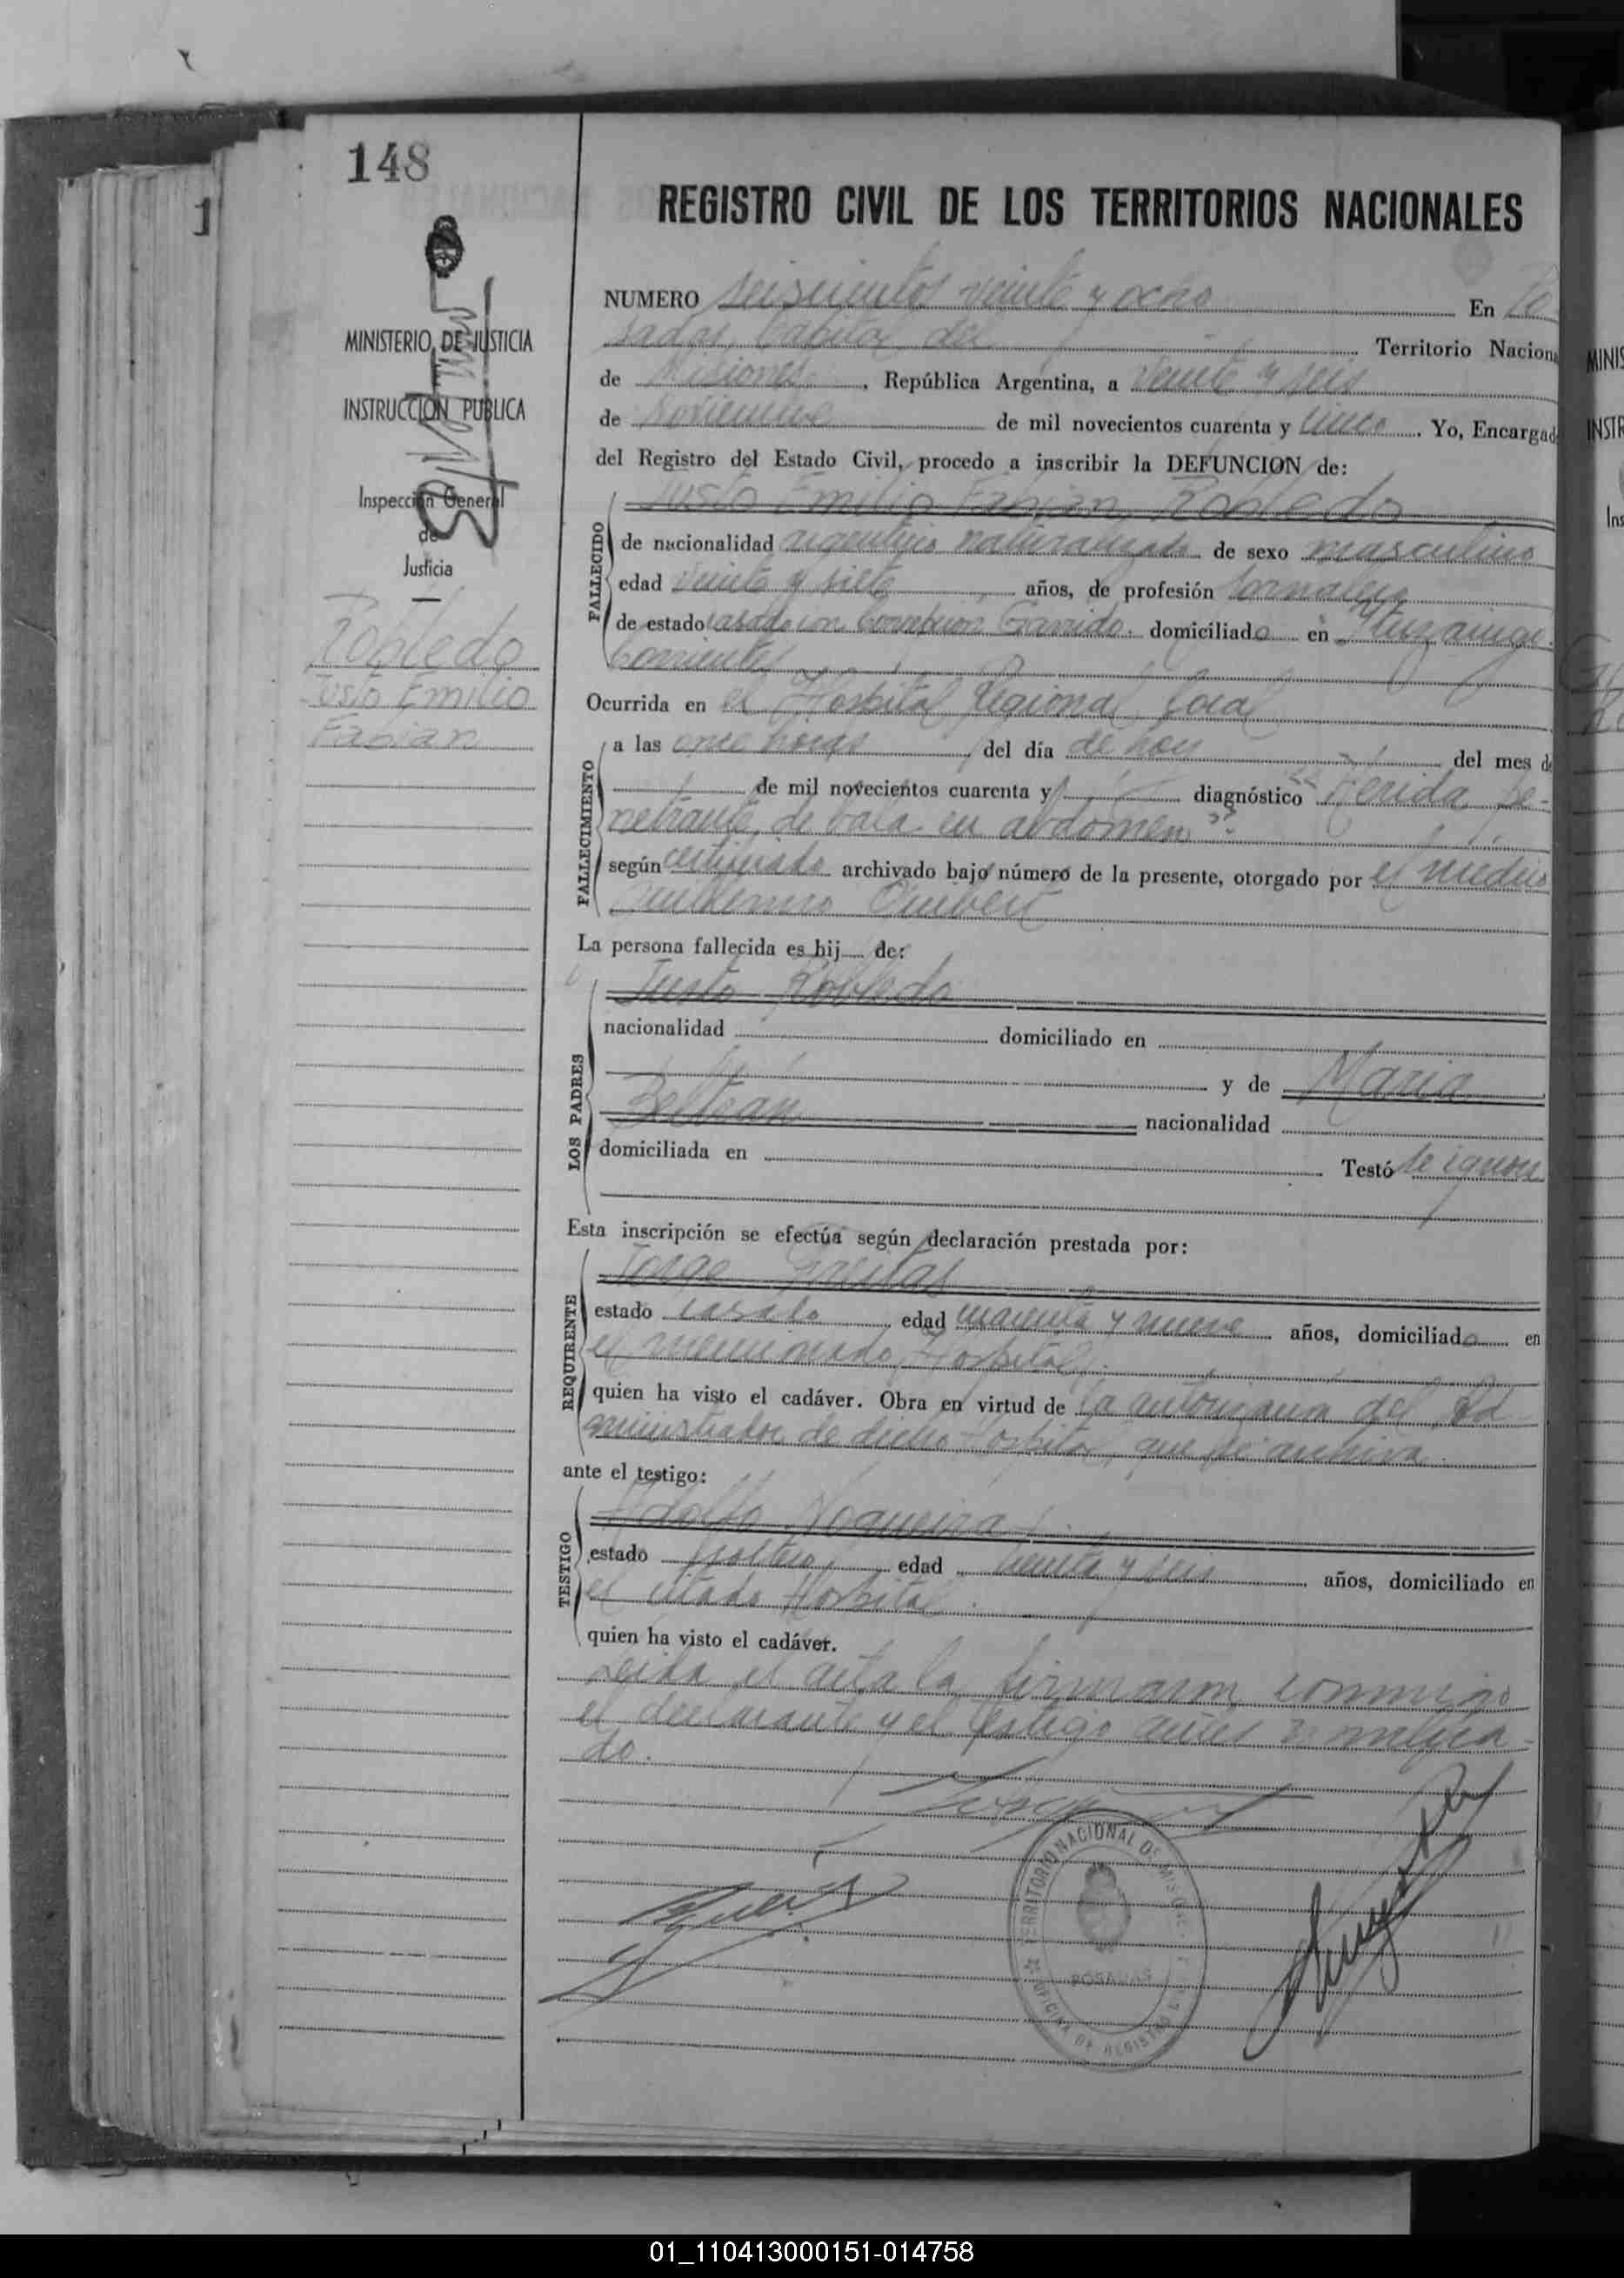 148
1
MINISTERIO DE JUSTICIA
INSTRUCCION PUBLICA
Inspección General
de
Justicia
Robledo
Justo Emilio
Fabian
REGISTRO CIVIL DE LOS TERRITORIOS NACIONALES
NUMERO seiscientos veinte y ocho En Po
sadas, Capital del Territorio Nacion
de Misiones, República Argentina, a veinte y seis
de Noviembre de mil novecientos cuarenta y cinco. Yo, Encargad
del Registro del Estado Civil, procedo a inscribir la DEFUNCION de:
Justo Emilio Fabian Robledo
FALLECIDO
de nacionalidad argentino naturalizado de sexo masculino
edad veinte y siete años, de profesión Jornalero
de estado casado con Garrido, domiciliado en Ituzaingo
Corrientes
Ocurrida en el Hospital Regional local
FALLECIMIENTO
a las once horas del día de hoy del mes de
de mil novecientos cuarenta y diagnóstico "Herida pe-
netrante de bala en abdomen"
según certificado archivado bajo número de la presente, otorgado por el médico
Guillermo
La persona fallecida es hij de:
LOS PADRES
Justo Robledo
nacionalidad domiciliado en
y de Maria
Beltran nacionalidad
domiciliada en Testó Se ignora
Esta inscripción se efectúa según declaración prestada por:
REQUIRENTE
Jorge Freitas
estado casado edad cuarenta y nueve años, domiciliado en
el mencionado Hospital
quien ha visto el cadáver. Obra en virtud de la autorización del Ad
ministrador de dicho Hospital, que se archiva.
ante el testigo:
TESTIGO
Adolfo Nogueira
estado soltero edad veinte y seis años, domiciliado en
el citado Hospital.
quien ha visto el cadáver.
Leida el acta la firmaron conmigo
el declarante y el testigo antes nombra-
do.
TERRITORIO NACIONAL DE MISIONES
POSADAS
OFICINA DE REGISTRO
MINIS
INSTR
Ins
01_110413000151-014758